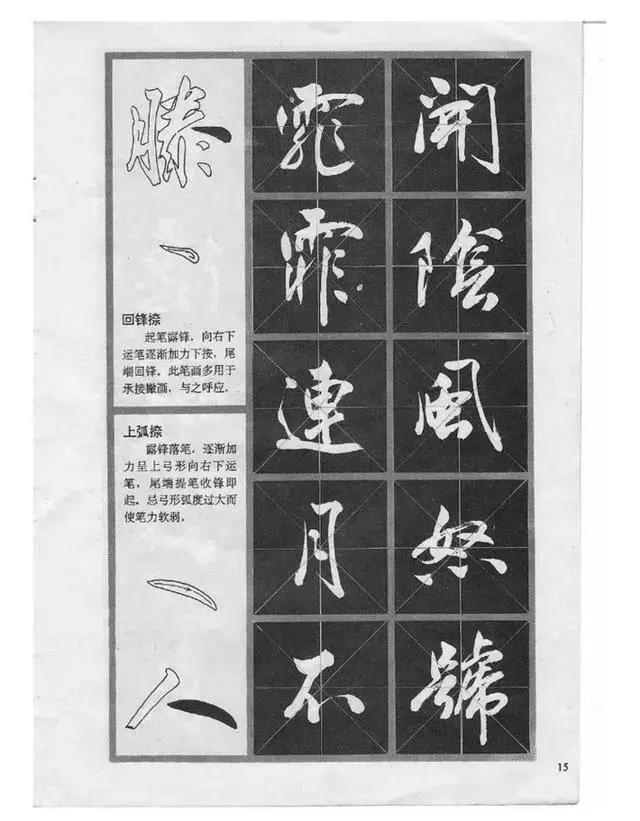 滕
回锋捺
起笔露锋，向右下
运笔逐渐加力下按，尾
端回锋。此笔画多用于
承接撇画，与之呼应。
上弧捺
露锋落笔，逐渐加
力呈上弓形向右下运
笔，尾端提笔收锋即
起。总弓形弧度过大而
使笔力软弱。
人
霏霏連月不
開陰風怒號
15